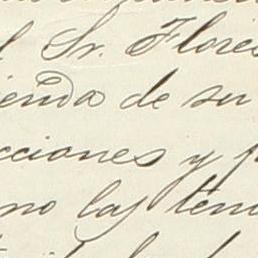 l Sr. Flores
ienda de su
cciones y p
no las ten